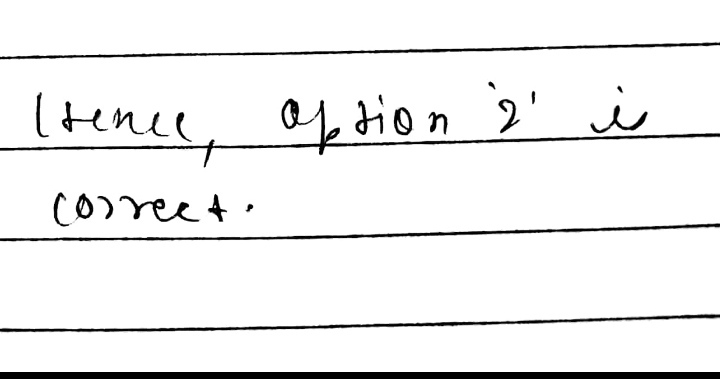 Hence, option '2' is
correct.